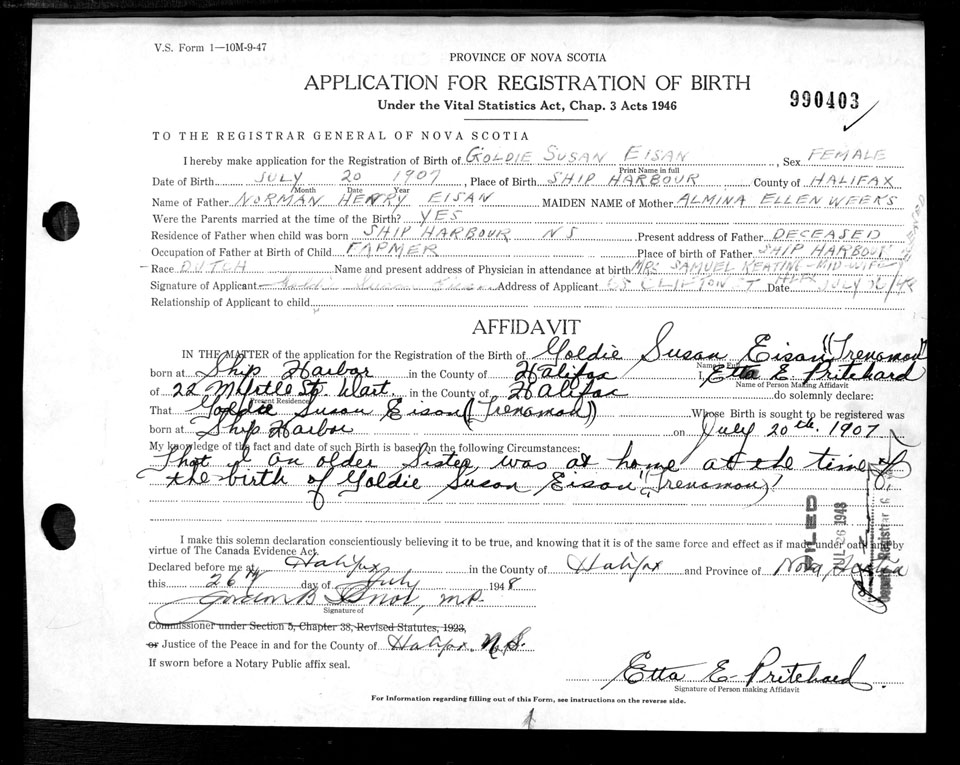 V.S. Form 1—10M-9-47
PROVINCE OF NOVA SCOTIA
APPLICATION FOR REGISTRATION OF BIRTH
Under the Vital Statistics Act, Chap. 3 Acts 1946
990403
TO THE REGISTRAR GENERAL OF NOVA SCOTIA
I hereby make application for the Registration of Birth of GOLDIE SUSAN EISAN, Sex FEMALE
Print Name in full
Date of Birth JULY 20 1907, Place of Birth SHIP HARBOUR County of HALIFAX
Month Date Year
Name of Father NORMAN HENRY EISAN MAIDEN NAME of Mother ALMINA ELLEN WEEKS
Were the Parents married at the time of the Birth? YES
Residence of Father when child was born SHIP HARBOUR NS Present address of Father DECEASED
Occupation of Father at Birth of Child FARMER Place of birth of Father SHIP HARBOUR
Race DUTCH Name and present address of Physician in attendance at birth MRS SAMUEL KEATING-MID-WIFE
Signature of Applicant Goldie Susan Address of Applicant 65 CLIFTON ST HFX Date JULY /48
Relationship of Applicant to child
AFFIDAVIT
IN THE MATTER of the application for the Registration of the Birth of Goldie Susan Eisan "(Trenamon)
born at Ship Harbor in the County of Halifax I, Etta E Pritchard
Name in Full
Name of Person Making Affidavit
of 22 Myrtle St. Dart. in the County of Halifax do solemnly declare:
Present Residence
That Goldie Susan Eison (Trenamon) Whose Birth is sought to be registered was
born at Ship Harbor on July 20th. 1907
My knowledge of the fact and date of such Birth is based on the following Circumstances:
That I an older Sister was at home at the time of
the birth of Goldie Susan Eison "(Trenamon)
FILED
JUL 26 1948
Deputy Registrar
I make this solemn declaration conscientiously believing it to be true, and knowing that it is of the same force and effect as if made under oath and by
virtue of The Canada Evidence Act.
Declared before me at Halifax in the County of Halifax and Province of Nova Scotia
this 26th day of July 1948
Signature of
Commissioner under Section 5, Chapter 38, Revised Statutes, 1923,
or Justice of the Peace in and for the County of Halifax N.S.
If sworn before a Notary Public affix seal.
Etta E Pritchard.
Signature of Person making Affidavit
For Information regarding filling out of this Form, see instructions on the reverse side.